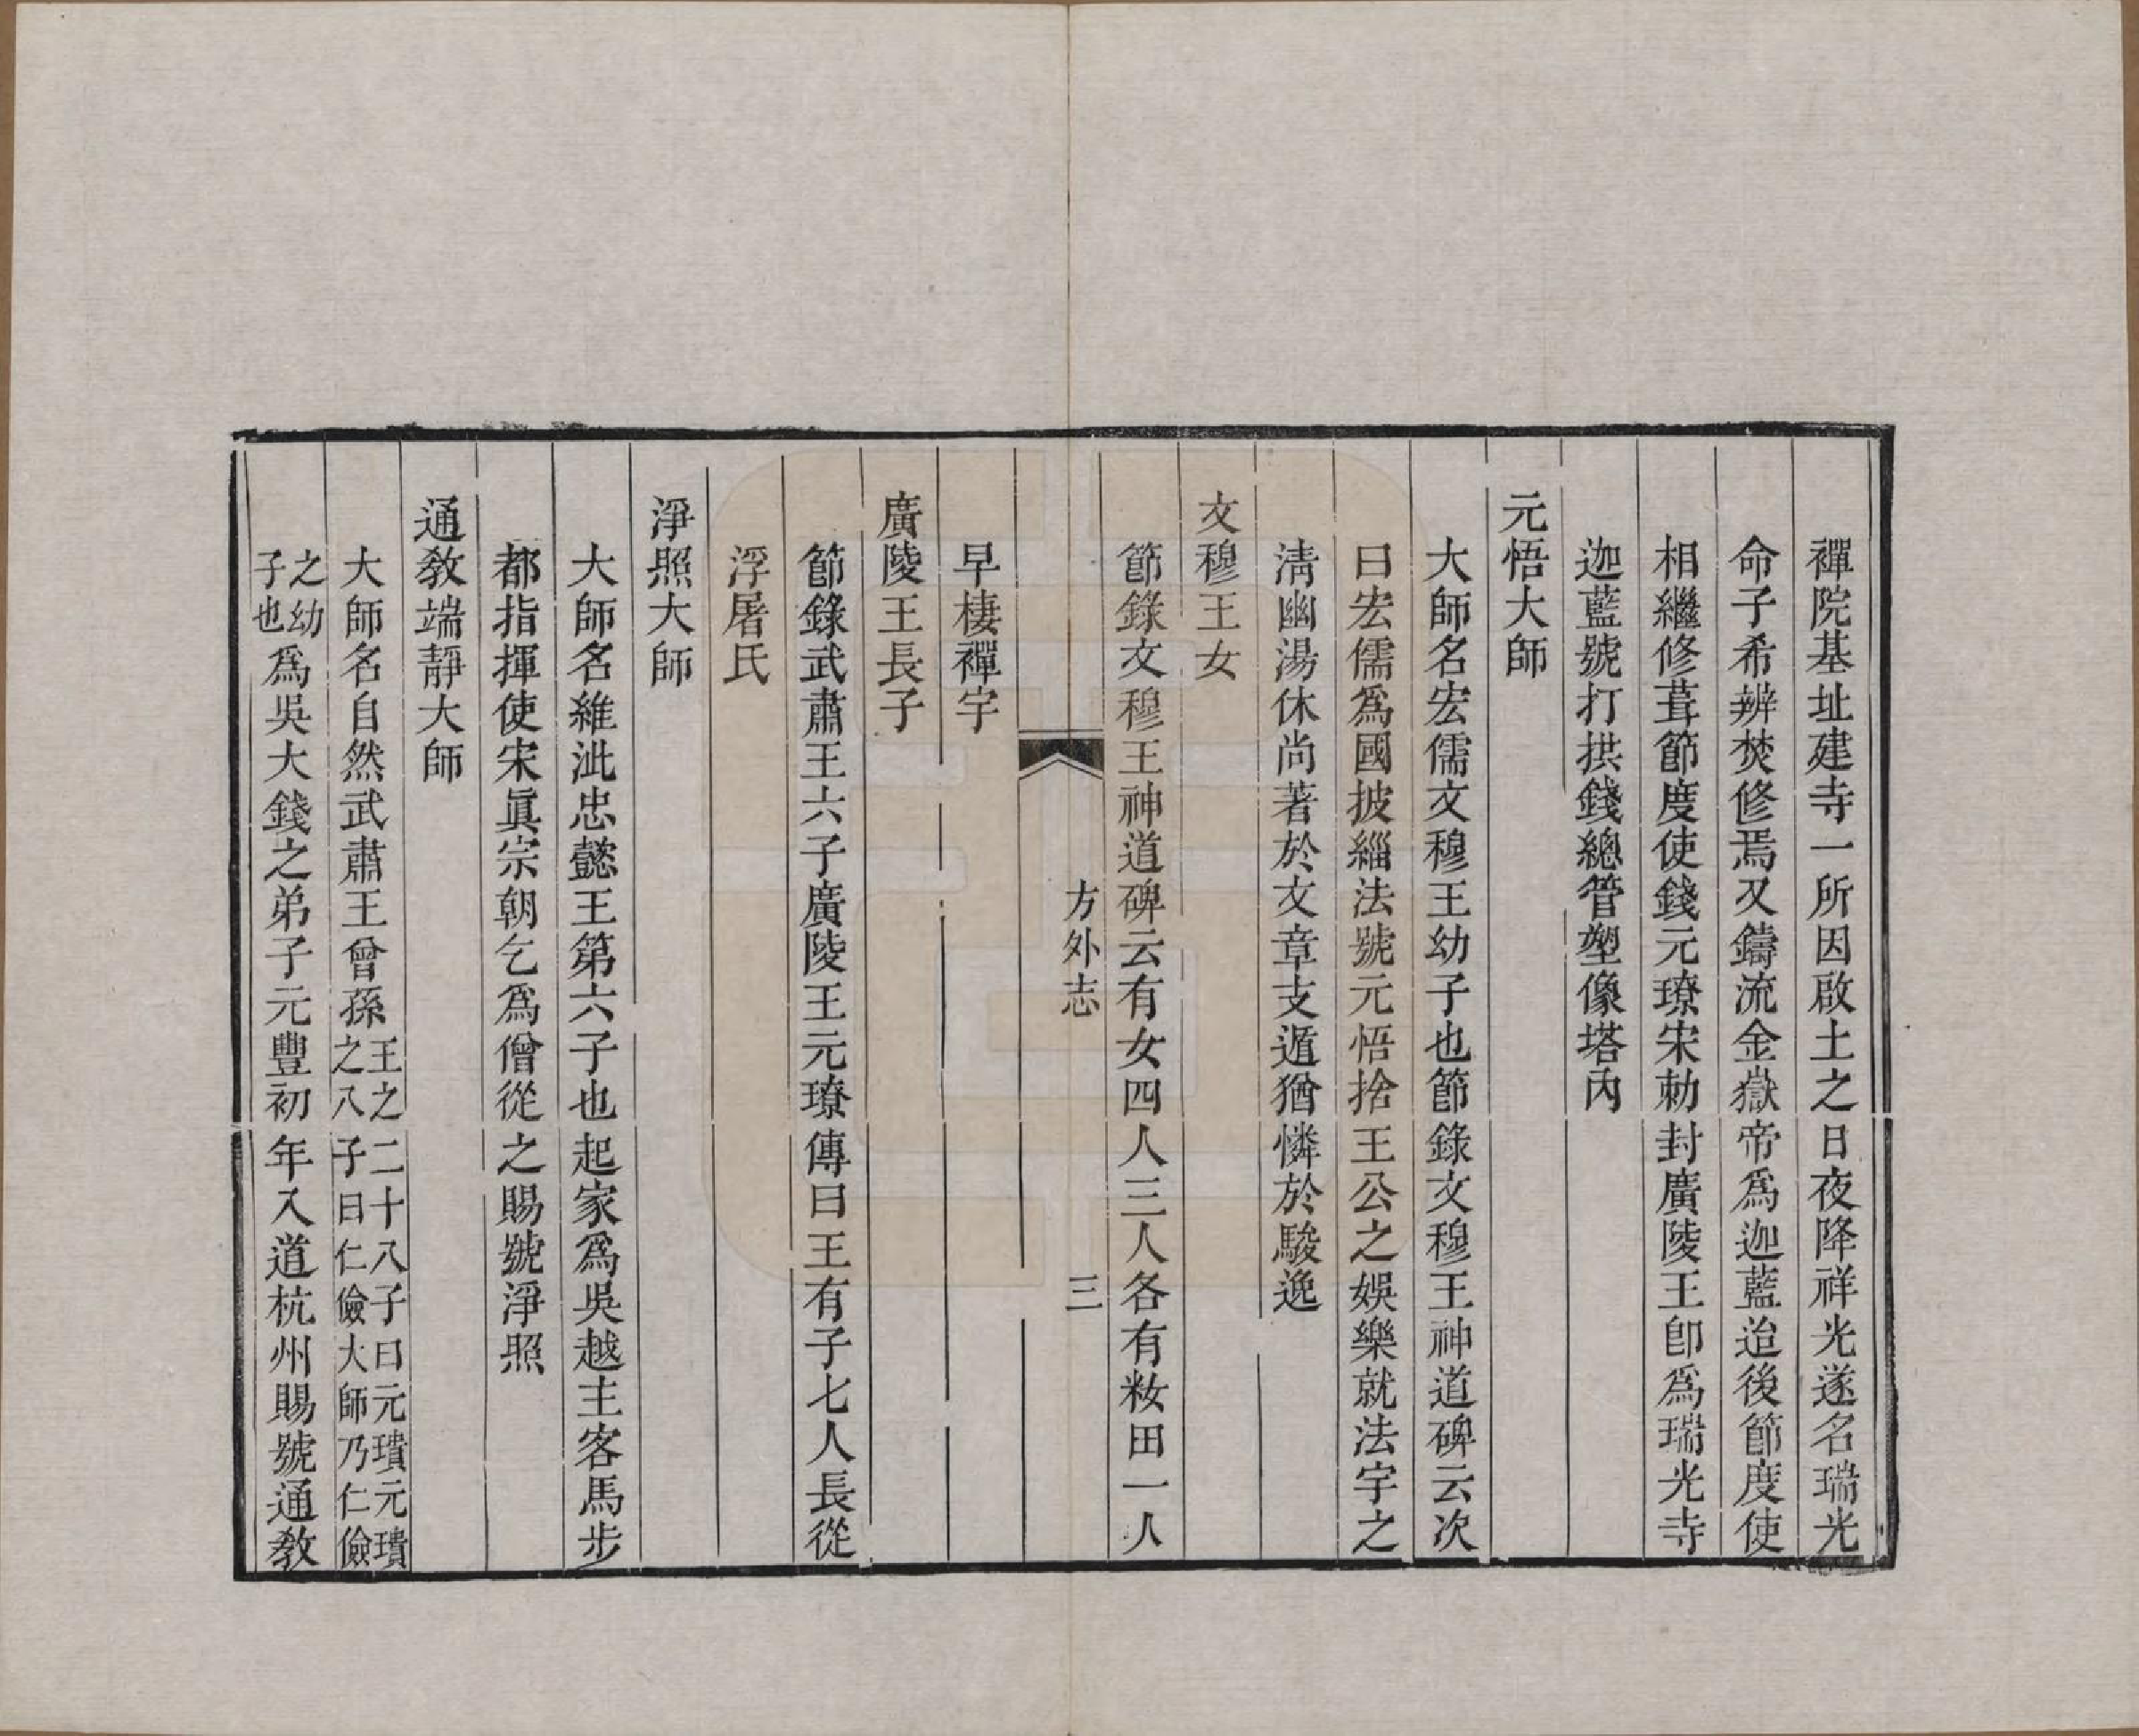 禪院基址建寺一所因啟土之日夜降祥光遂名瑞光
命子希辨焚修焉又鑄流金嶽帝爲迦藍迨後節度使
相繼修葺節度使錢元璙宋勅封廣陵王卽爲瑞光寺
迦藍號打拱錢總管塑像塔內
元悟大師
大師名宏儒文穆王幼子也節錄文穆王神道碑云次
曰宏儒爲國披緇法號元悟捨王公之娛樂就法宇之
淸幽湯休尚著於文章支遁猶憐於駿逸
文穆王女
節錄文穆王神道碑云有女四人三人各有籹田一人
方外志
三
早棲禪宇
廣陵王長子
節錄武肅王六子廣陵王元璙傳曰王有子七人長從
浮屠氏
淨照大師
大師名維泚忠懿王第六子也起家爲吳越主客馬步
都指揮使宋眞宗朝乞爲僧從之賜號淨照
通教端靜大師
大師名自然武肅王曾孫王之二十八子曰元璝元璝之八子曰仁儉大師乃仁儉
之幼子也爲吳大錢之弟子元豐初年入道杭州賜號通教